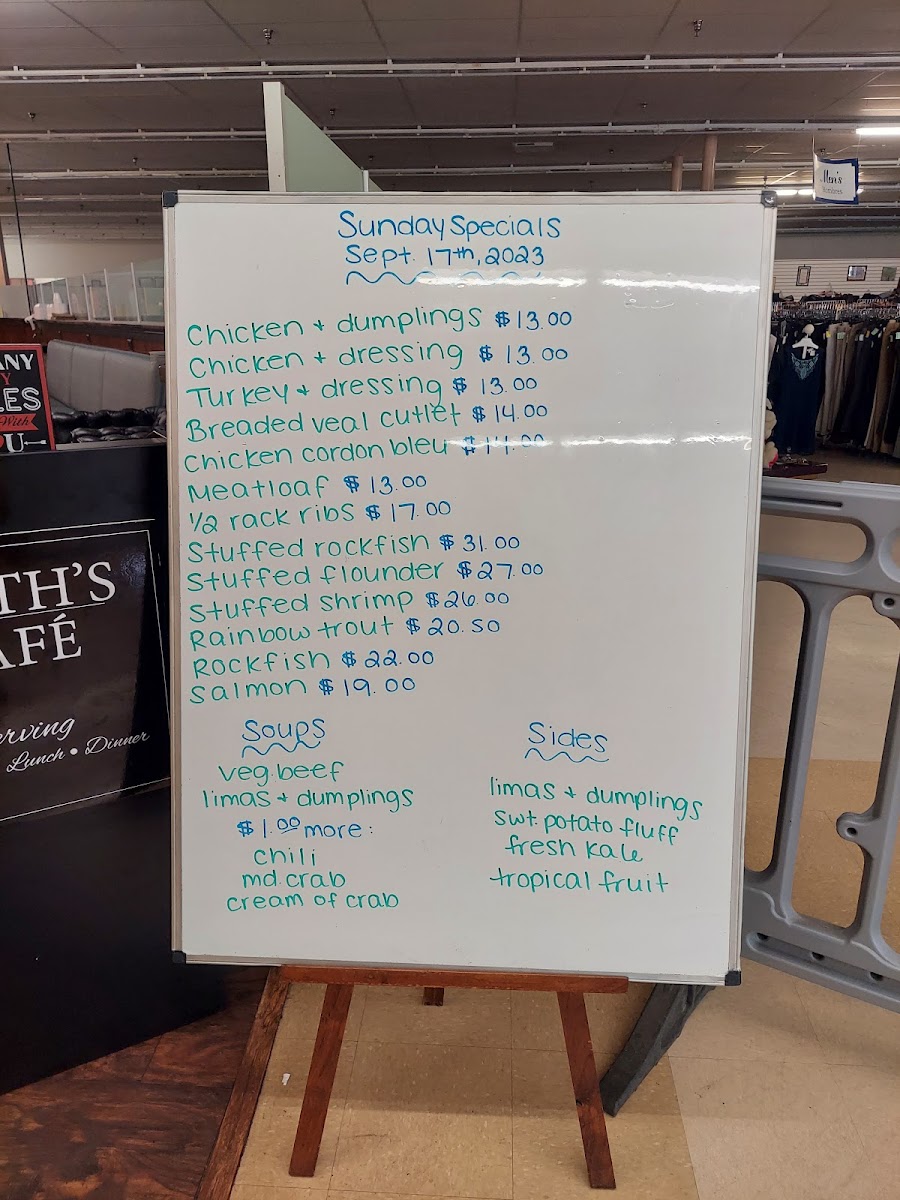 Sunday Specials
Sept. 17th, 2023
Chicken + dumplings $13.00
Chicken + dressing $13.00
Turkey + dressing $13.00
Breaded veal cutlet $14.00
Chicken cordon bleu $14.00
Meatloaf $13.00
1/2 rack ribs $17.00
Stuffed rockfish $31.00
Stuffed flounder $27.00
Stuffed shrimp $26.00
Rainbow trout $20.50
Rockfish $22.00
Salmon $19.00
Soups
veg. beef
limas + dumplings
$1.00 more:
chili
md. crab
cream of crab
Sides
limas + dumplings
swt. potato fluff
fresh kale
tropical fruit
ANY
Y
LES
With
U
TH'S
AFÉ
erving
Lunch • Dinner
Men's